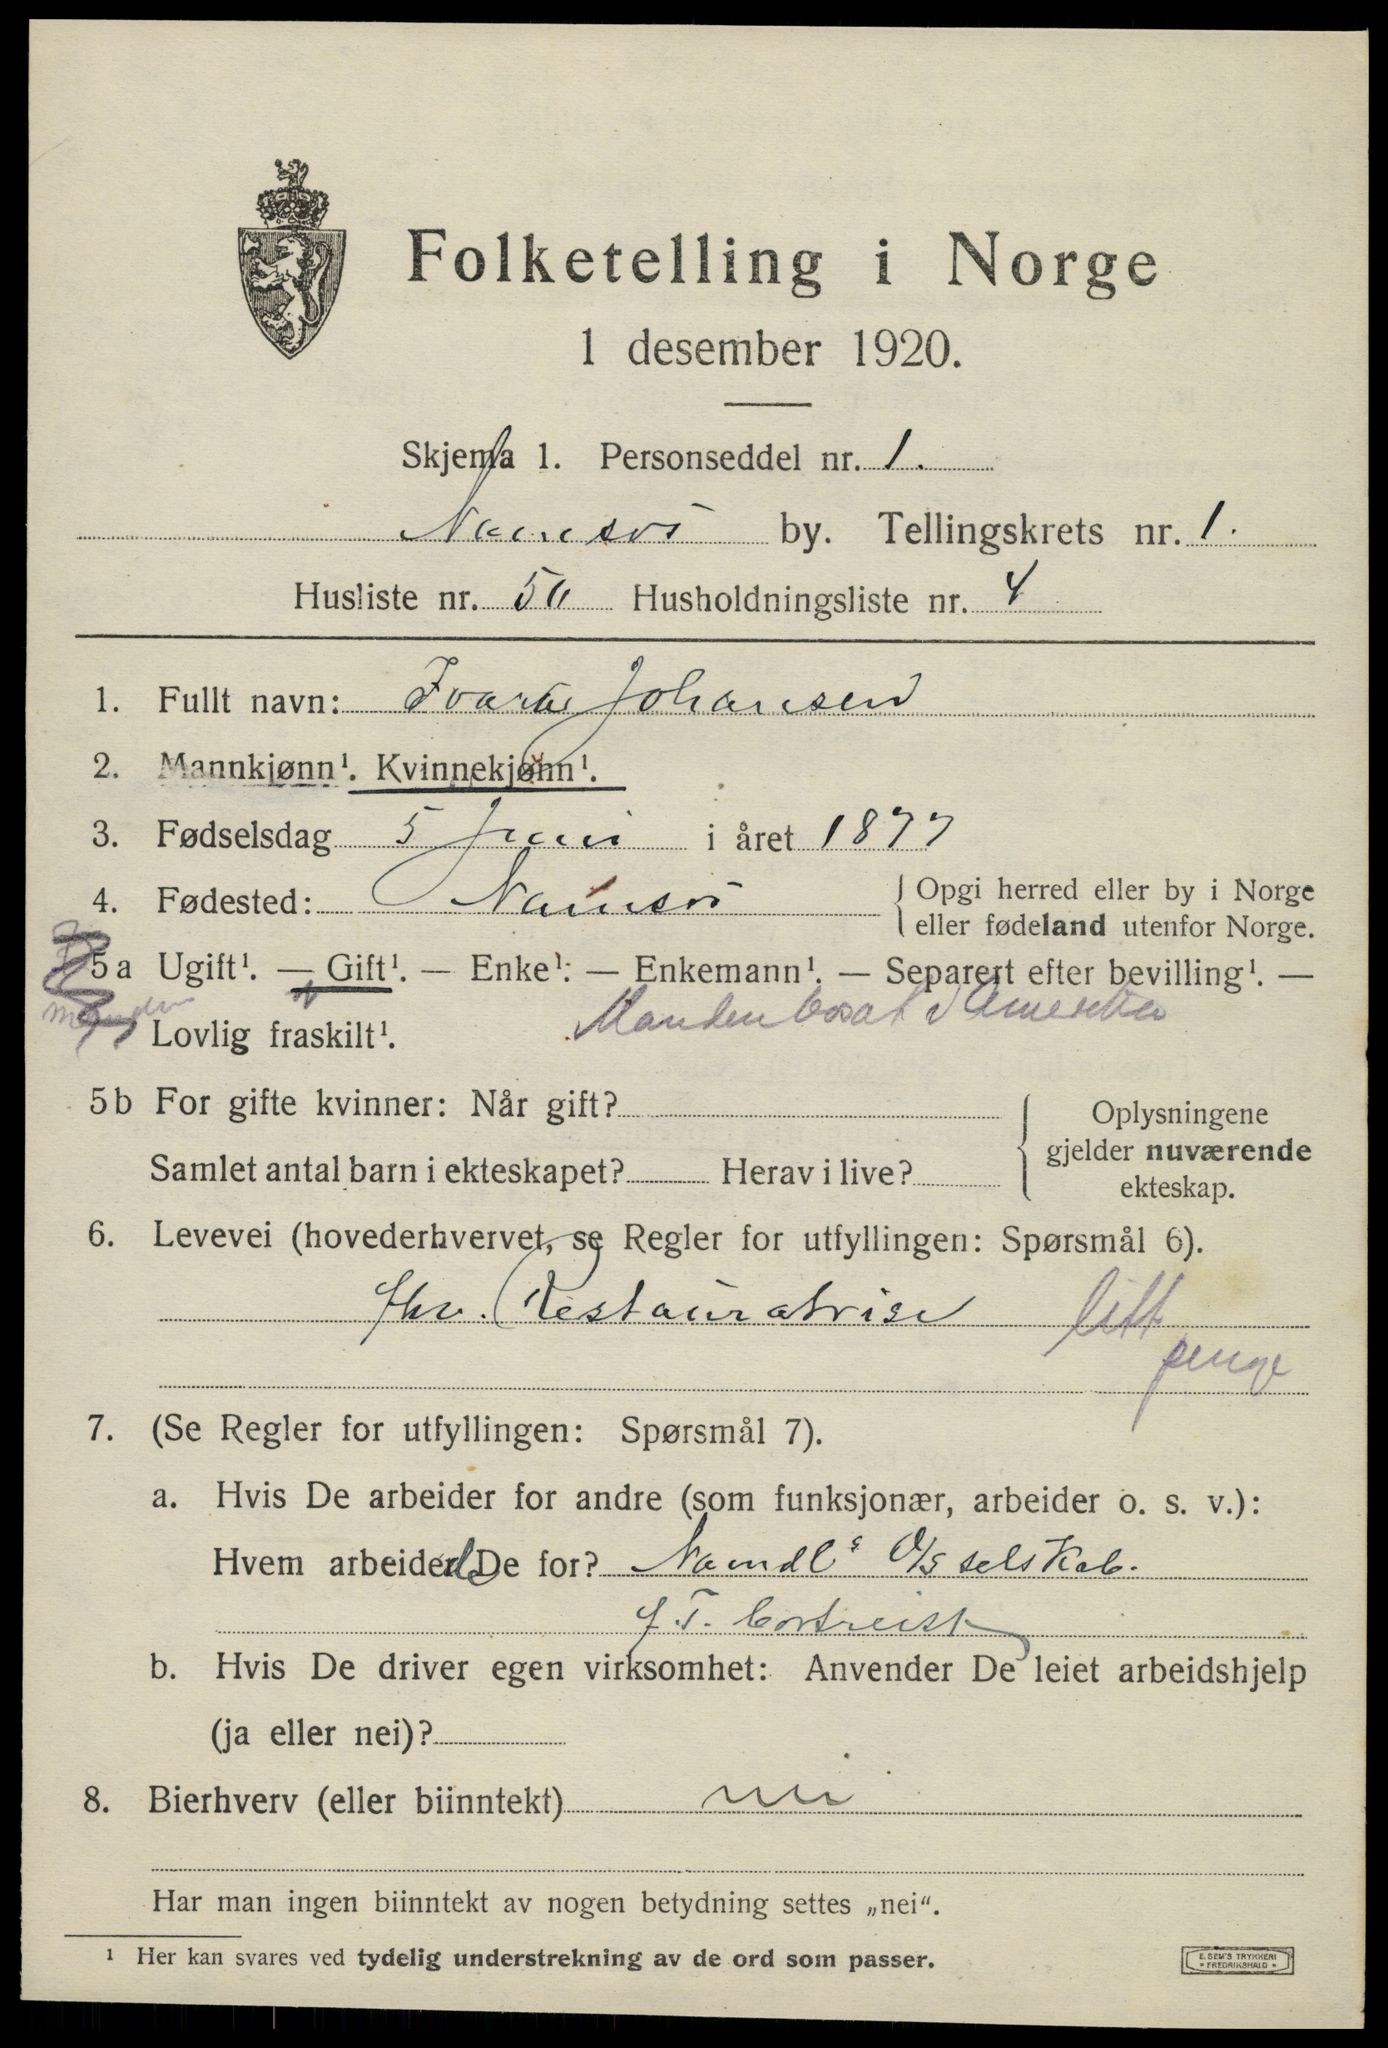 Folketelling i Norge
1 desember 1920.
Skjema 1. Personseddel nr. 1.
Namsos by. Tellingskrets nr. 1.
Husliste nr. 50 Husholdningsliste nr. 4
1. Fullt navn: Johansen
2. Mannkjønn¹. Kvinnekjønn¹.
3. Fødselsdag 5 Juni i året 1877
4. Fødested: Namsos { Opgi herred eller by i Norge
eller fødeland utenfor Norge.
5a Ugift¹. — Gift¹. — Enke¹. — Enkemann¹. — Separert efter bevilling¹. —
Manden bosat i Amerika
Lovlig fraskilt¹.
5b For gifte kvinner: Når gift?
Samlet antal barn i ekteskapet? Herav i live?
} Oplysningene
gjelder nuværende
ekteskap.
6. Levevei (hovederhvervet, se Regler for utfyllingen: Spørsmål 6).
fhv. Restauratrise litt
penge
7. (Se Regler for utfyllingen: Spørsmål 7).
a. Hvis De arbeider for andre (som funksjonær, arbeider o. s. v.):
Hvem arbeider De for? Namdls selskab.
f. T.
b. Hvis De driver egen virksomhet: Anvender De leiet arbeidshjelp
(ja eller nei)?
8. Bierhverv (eller biinntekt) nei
Har man ingen biinntekt av nogen betydning settes „nei“.
¹ Her kan svares ved tydelig understrekning av de ord som passer.
E. SEM'S TRYKKERI
* FREDRIKSHALD *